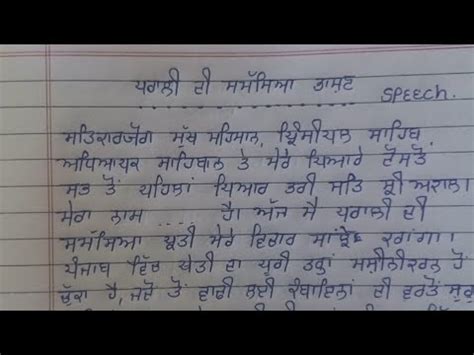 ਪਰਾਲੀ ਦੀ ਸਮੱਸਿਆ ਭਾਸ਼ਣ
SPEECH.
ਸਤਿਕਾਰਯੋਗ ਮੁੱਖ ਮਹਿਮਾਨ, ਪ੍ਰਿੰਸੀਪਲ ਸਾਹਿਬ
ਅਧਿਆਪਕ ਸਾਹਿਬਾਨ ਤੇ ਮੇਰੇ ਪਿਆਰੇ ਦੋਸਤੋ
ਸਭ ਤੋਂ ਪਹਿਲਾਂ ਪਿਆਰ ਭਰੀ ਸਤਿ ਸ਼੍ਰੀ ਅਕਾਲ।
ਮੇਰਾ ਨਾਮ .... ਹੈ। ਅੱਜ ਮੈਂ ਪਰਾਲੀ ਦੀ
ਸਮੱਸਿਆ ਪ੍ਰਤੀ ਮੇਰੇ ਵਿਚਾਰ ਸਾਂਝੇ ਕਰਾਂਗਾ।
ਪੰਜਾਬ ਵਿੱਚ ਖੇਤੀ ਦਾ ਪੂਰੀ ਤਰ੍ਹਾਂ ਮਸ਼ੀਨੀਕਰਨ ਹੋ
ਚੁੱਕਾ ਹੈ, ਜਦੋਂ ਤੋਂ ਵਾਢੀ ਲਈ ਕੰਬਾਇਨਾਂ ਦੀ ਵਰਤੋਂ ਸ਼ੁਰੂ